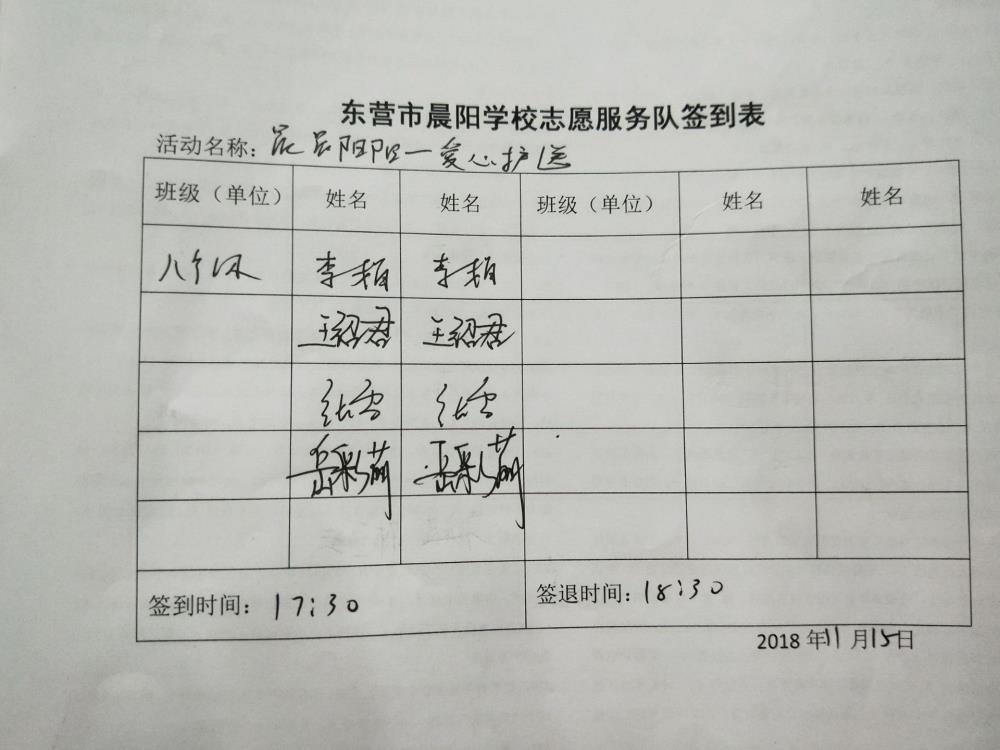 东营市晨阳学校志愿服务队签到表
活动名称：晨晨阳阳一爱心护送
班级（单位） 姓名 姓名 班级（单位） 姓名 姓名
李相 李相
王绍君 王绍君
张雪 张雪
岳彩萌 岳彩萌
签到时间：17:30 签退时间：18:30
2018年11月15日